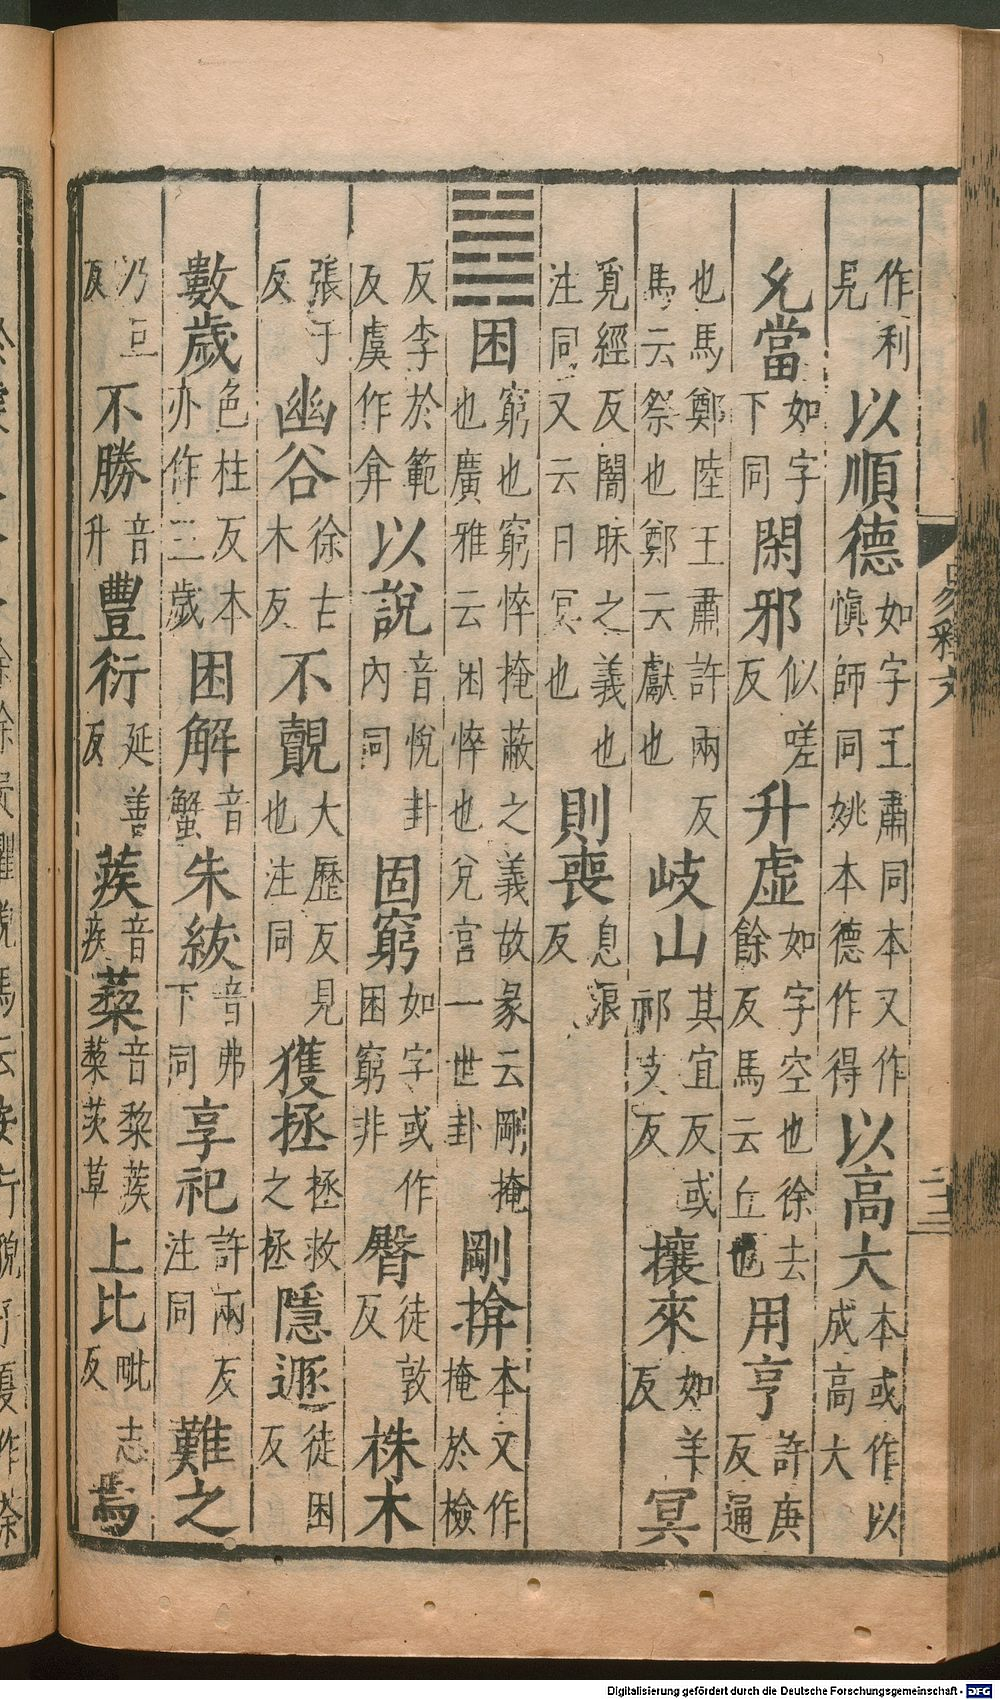 作利見以順德如字王肅同本又作愼師同姚本德作得以高大本或作以成高大
允當如字下同閑邪似嗟反升虛如字空也徐去餘反馬云丘也用亨許庚反通
也馬鄭陸王肅許兩反馬云祭也鄭云獻也岐山其宜反或祁支反攘來如羊反冥
覓經反闇昧之義也注同又云日冥也則喪息浪反
困窮也窮悴掩蔽之義故彖云剛掩也廣雅云困悴也兌宮一世卦剛揜本又作掩於檢
反李於範反虞作弇以說音悅卦內同固窮如字或作困窮非臀徒敦反株木
張于反幽谷徐古木反不覿大歷反見也注同獲拯拯救之拯隱遯徒困反
數歲色柱反本亦作三歲困解音蟹朱紱音弗下同享祀許兩反注同難之
乃旦反不勝音升豐衍延善反蒺音疾蔾音黎蒺蔾茨草上比毗志反焉
易釋文
二十三
Digitalisierung gefördert durch die Deutsche Forschungsgemeinschaft - DFG